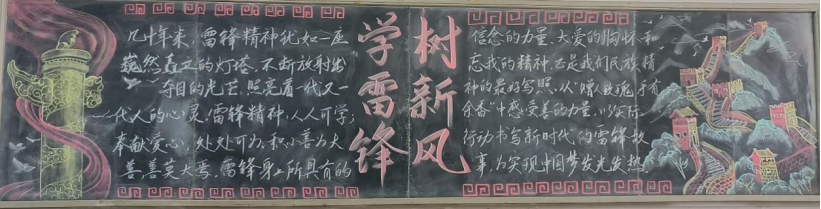 学雷锋
树新风
几十年来,雷锋精神犹如一座
巍然矗立的灯塔,不断放射出
夺目的光芒,照亮着一代又一
代人的心灵.雷锋精神,人人可学;
奉献爱心,处处可为.积小善为大
善,善莫大焉.雷锋身上所具有的
信念的力量、大爱的胸怀、和
忘我的精神,正是我们民族精
神的最好写照.从"赠人玫瑰,手有
余香"中感受善的力量,以实际
行动书写新时代的雷锋故
事,为实现中国梦发光发热.